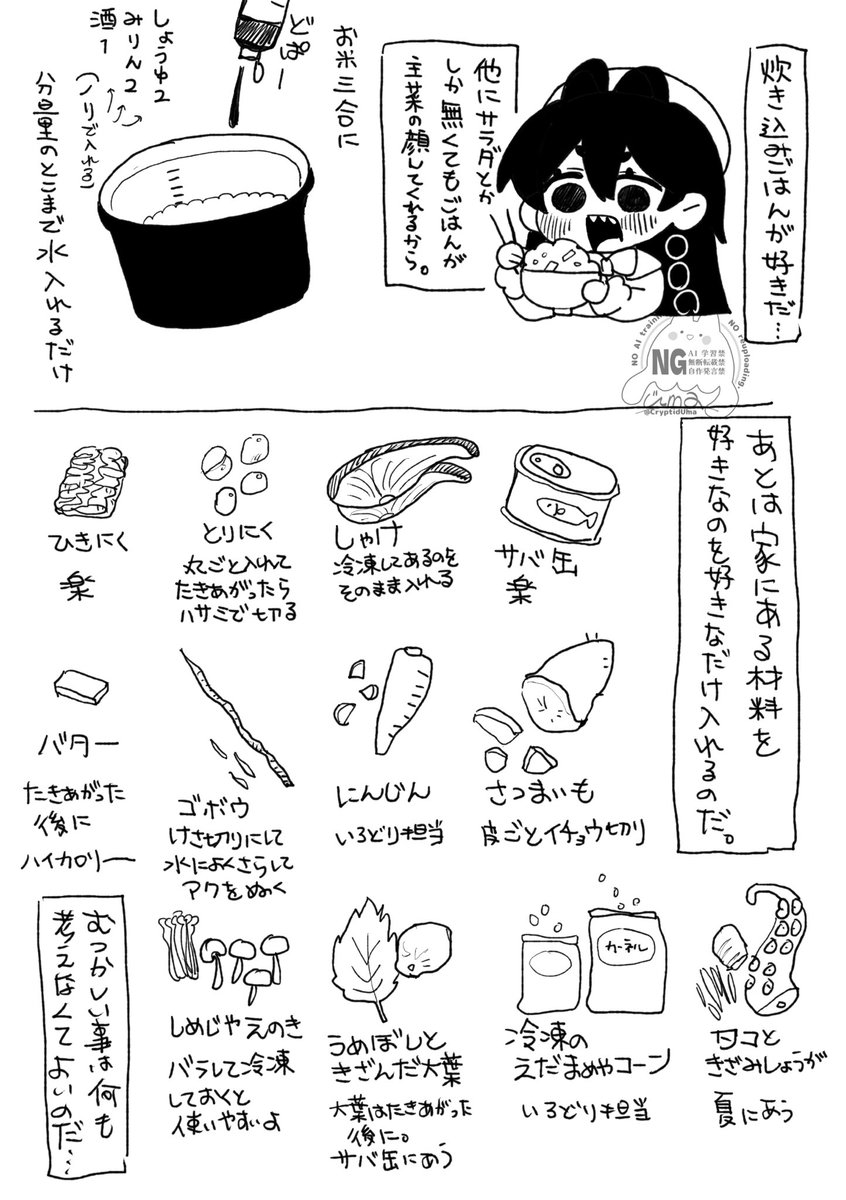 炊き込みごはんが好きだ…
他にサラダとか
しか無くてもごはんが
主菜の顔してくれるから。
お米三合に
どぽー
しょうゆ2
みりん2
酒1
(ノリで入れる)
分量のとこまで水入れるだけ
NO AI training
NO reuploading.
NG
AI 学習禁
無断転載禁
自作発言禁
uma
@CryptidUma
あとは家にある材料を
好きなのを好きなだけ入れるのだ。
サバ缶
楽
しゃけ
冷凍してあるのを
そのまま入れる
とりにく
丸ごと入れて
たきあがったら
ハサミで切る
ひきにく
楽
さつまいも
皮ごとイチョウ切り
にんじん
いろどり担当
ゴボウ
けさ切りにして
水によくさらして
アクをぬく
バター
たきあがった
後に
ハイカロリー
タコと
きざみしょうが
夏にあう
カーネル
冷凍の
えだまめやコーン
いろどり担当
うめぼしと
きざんだ大葉
大葉はたきあがった
後に。
サバ缶にあう
しめじやえのき
バラして冷凍
しておくと
使いやすいよ
むつかしい事は何も
考えなくてよいのだ…